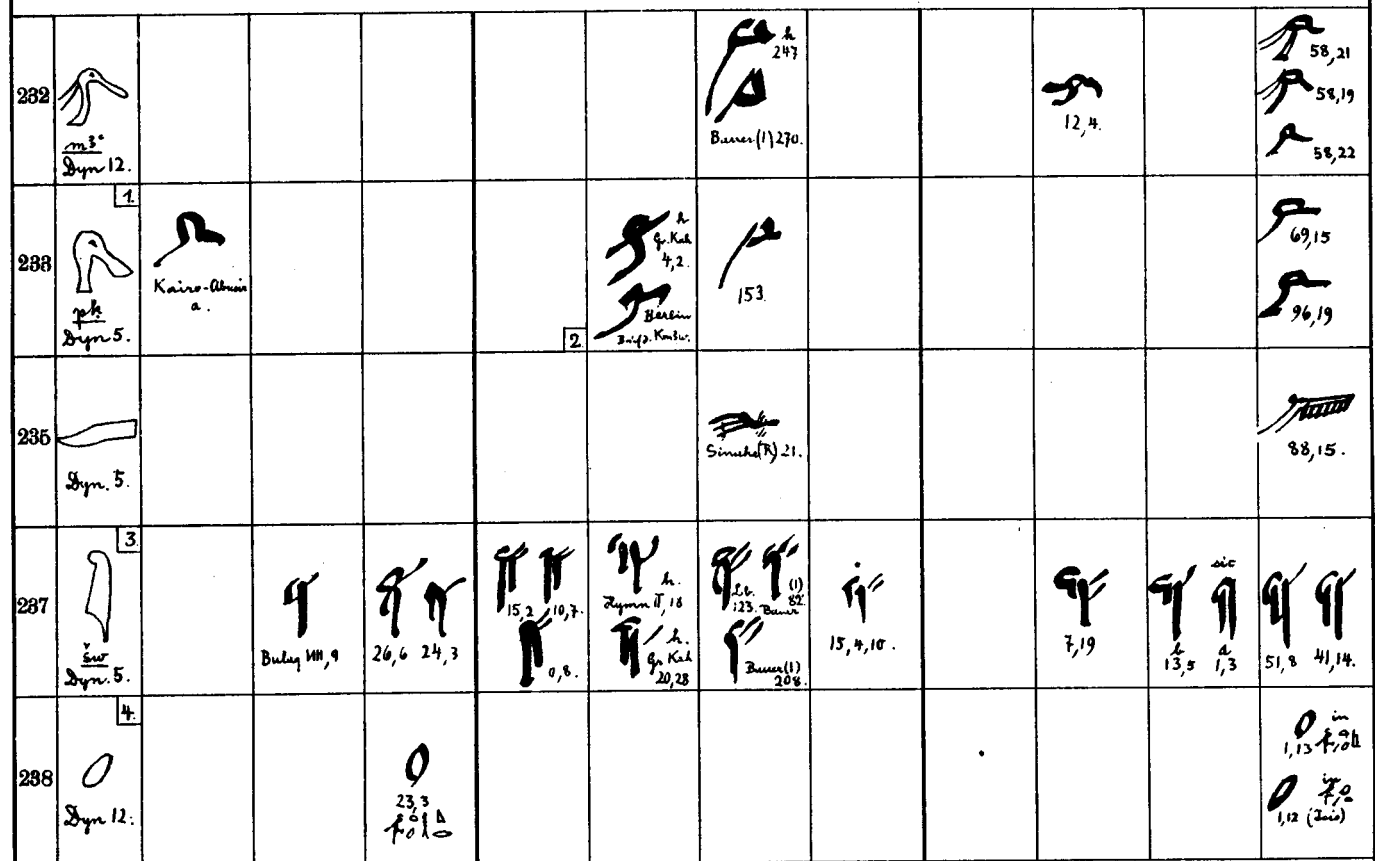 232
m3ꜥ
Dyn 12.
h
247
Bauer (1) 270.
12,4.
58,21
58,19
58,22
1.
233
pḳ
Dyn 5.
Kairo-Abusir
a.
2
h
Gr. Kah
4,2.
Berlin
153.
69,15
96,19
235
Dyn. 5.
Sinuhe (R) 21.
88,15.
3.
237
šw
Dyn. 5.
26,6 24,3
15,2 10,7.
0,8.
h.
Hymn II, 18
h.
Gr. Kah
20,28
Lb.
123.
(1)
82.
Bauer
Bauer (1)
208.
15,4,10.
7,19
b
13,5
sic
a
1,3
51,8 41,14.
4.
238
Dyn 12.
23,3
1,13 in
1,12 in
(Isis)